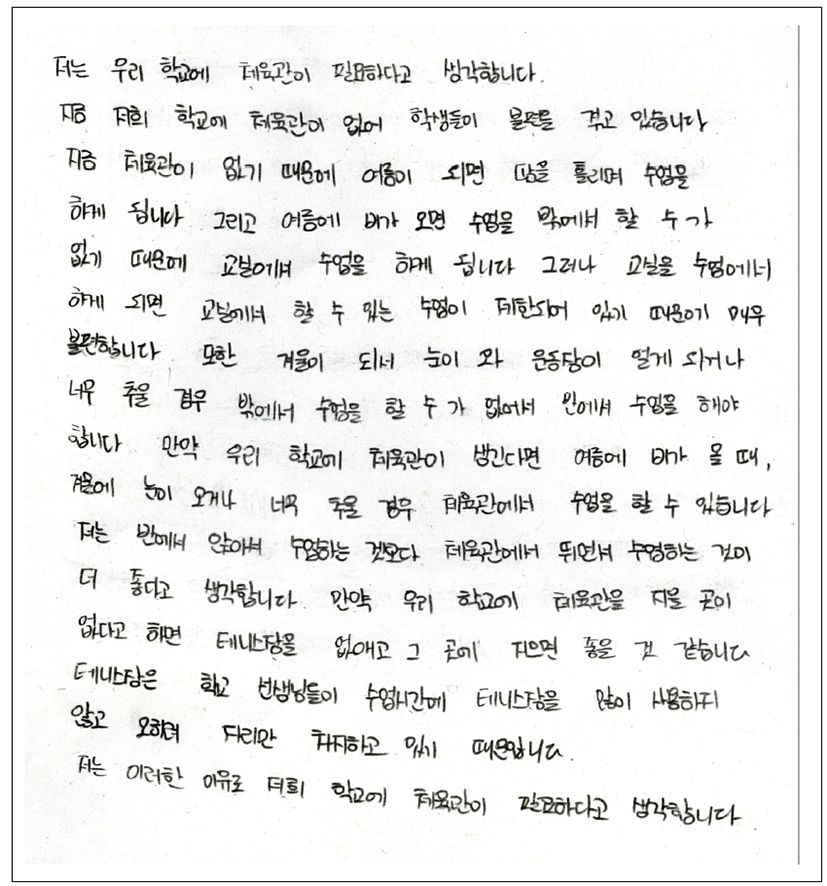 저는 우리 학교에 체육관이 필요하다고 생각합니다.
지금 저희 학교에 체육관이 없어 학생들이 불편을 겪고 있습니다
지금 체육관이 없기 때문에 여름이 되면 땀을 흘리며 수업을
하게 됩니다 그리고 여름에 비가 오면 수업을 밖에서 할 수가
없기 때문에 교실에서 수업을 하게 됩니다 그러나 교실을 수업에서
하게 되면 교실에서 할 수 있는 수업이 제한되어 있기 때문이 매우
불편합니다 또한 겨울이 되서 눈이 와 운동장이 얼게 되거나
너무 추울 경우 밖에서 수업을 할 수 가 없어서 안에서 수업을 해야
합니다 만약 우리 학교에 체육관이 생긴다면 여름에 비가 올 때,
겨울에 눈이 오거나 너무 추울 경우 체육관에서 수업을 할 수 있습니다
저는 반에서 앉아서 수업하는 것보다 체육관에서 뛰면서 수업하는 것이
더 좋다고 생각합니다. 만약 우리 학교에 체육관을 지을 곳이
없다고 하면 테니스장을 없애고 그 곳에 지으면 좋을 것 같습니다
테니스장은 학교 선생님들이 수업시간에 테니스장을 많이 사용하지
않고 오히려 자리만 차지하고 있기 때문입니다.
저는 이러한 이유로 저희 학교에 체육관이 필요하다고 생각합니다